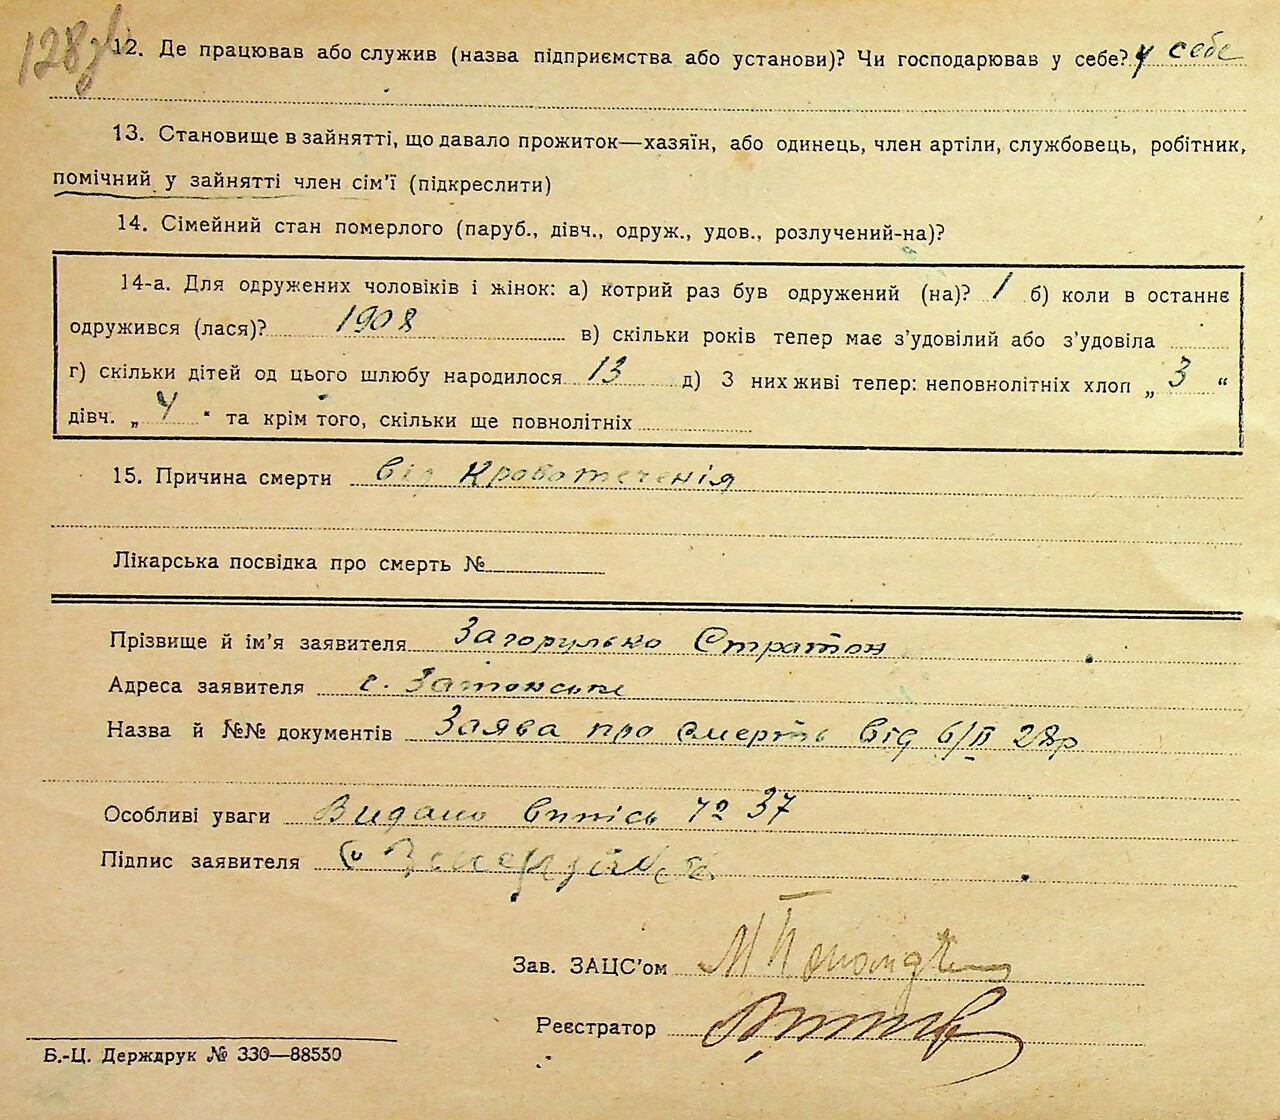 128зв
12. Де працював або служив (назва підприємства або установи)? Чи господарював у себе? у себе
13. Становище в зайнятті, що давало прожиток—хазяїн, або одинець, член артіли, службовець, робітник,
помічний у зайнятті член сім'ї (підкреслити)
14. Сімейний стан померлого (паруб., дівч., одруж., удов., розлучений-на)?
14-а. Для одружених чоловіків і жінок: а) котрий раз був одружений (на)? 1 б) коли в останнє
одружився (лася)? 1908 в) скільки років тепер має з'удовілий або з'удовіла
г) скільки дітей од цього шлюбу народилося 13 д) З них живі тепер: неповнолітніх хлоп „ 3 “
дівч. „ 4 “ та крім того, скільки ще повнолітніх
15. Причина смерти від Кровотеченія
Лікарська посвідка про смерть №
Прізвище й ім'я заявителя Загорулько Стратон
Адреса заявителя с. Затонське
Назва й №№ документів Заява про смерть від 6/II 28р
Особливі уваги Видано випись № 37
Підпис заявителя
Зав. ЗАЦС'ом
Реєстратор
Б.-Ц. Держдрук № 330—88550